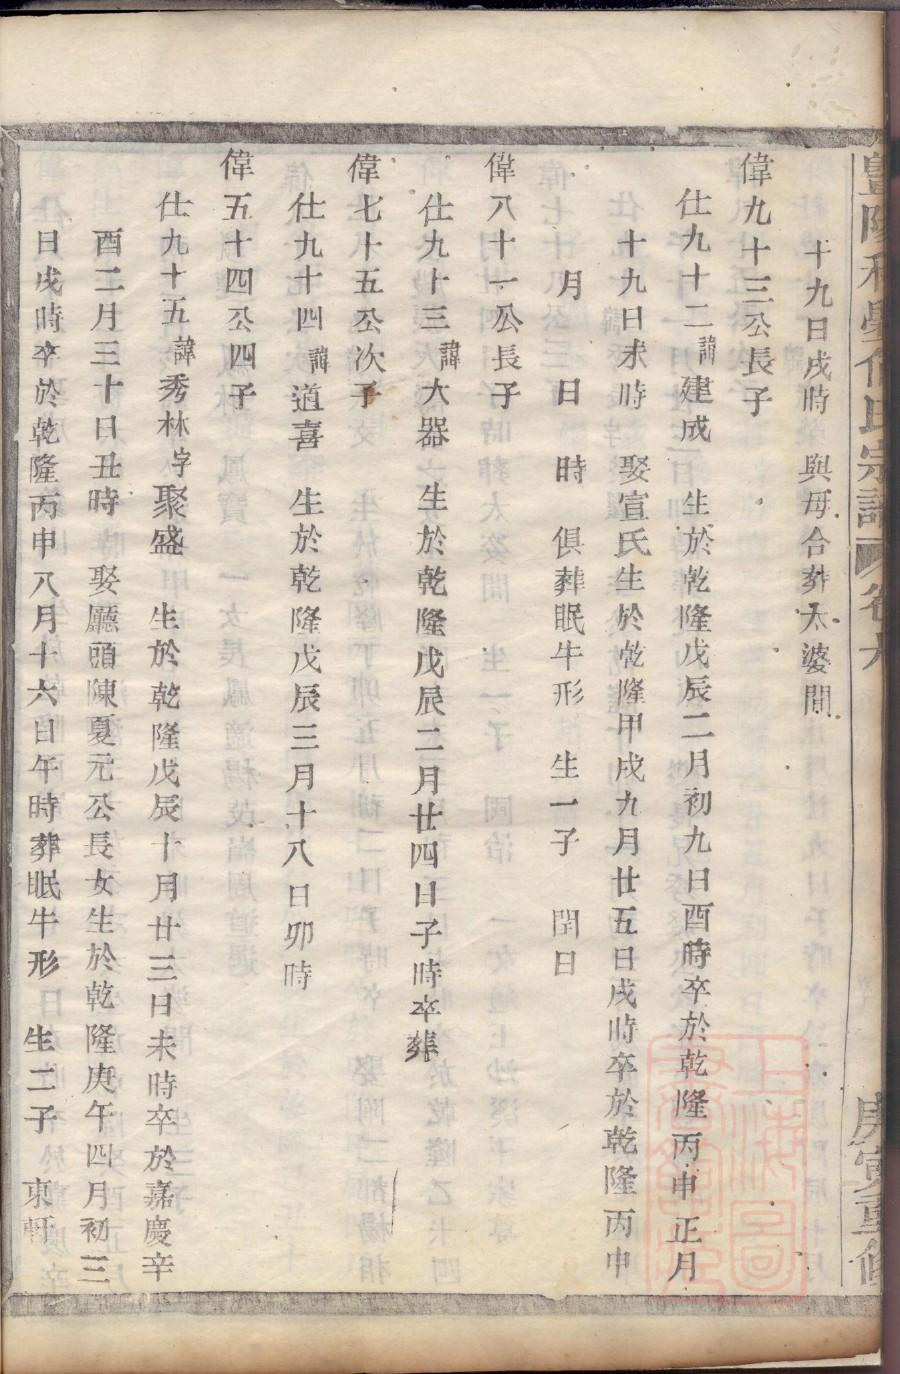 十九日戌時與母合葬大婆間
偉九十三公長子
仕九十二諱建成 生於乾隆戊辰二月初九日酉時卒於乾隆丙申正月
十九日未時 娶宣氏生於乾隆甲戌九月廿五日戌時卒於乾隆丙申
月 日 時 俱葬眠牛形 生一子 閏日
偉八十一公長子
仕九十三諱大器 生於乾隆戊辰二月廿四日子時卒葬
偉七十五公次子
仕九十四諱道喜 生於乾隆戊辰三月十八日卯時
偉五十四公四子
仕九十五諱秀林字聚盛 生於乾隆戊辰十月廿三日未時卒於嘉慶辛
酉二月三十日丑時 娶廳頭陳夏元公長女生於乾隆庚午四月初三
日戌時卒於乾隆丙申八月十六日午時葬眠牛形 生二子 東軒